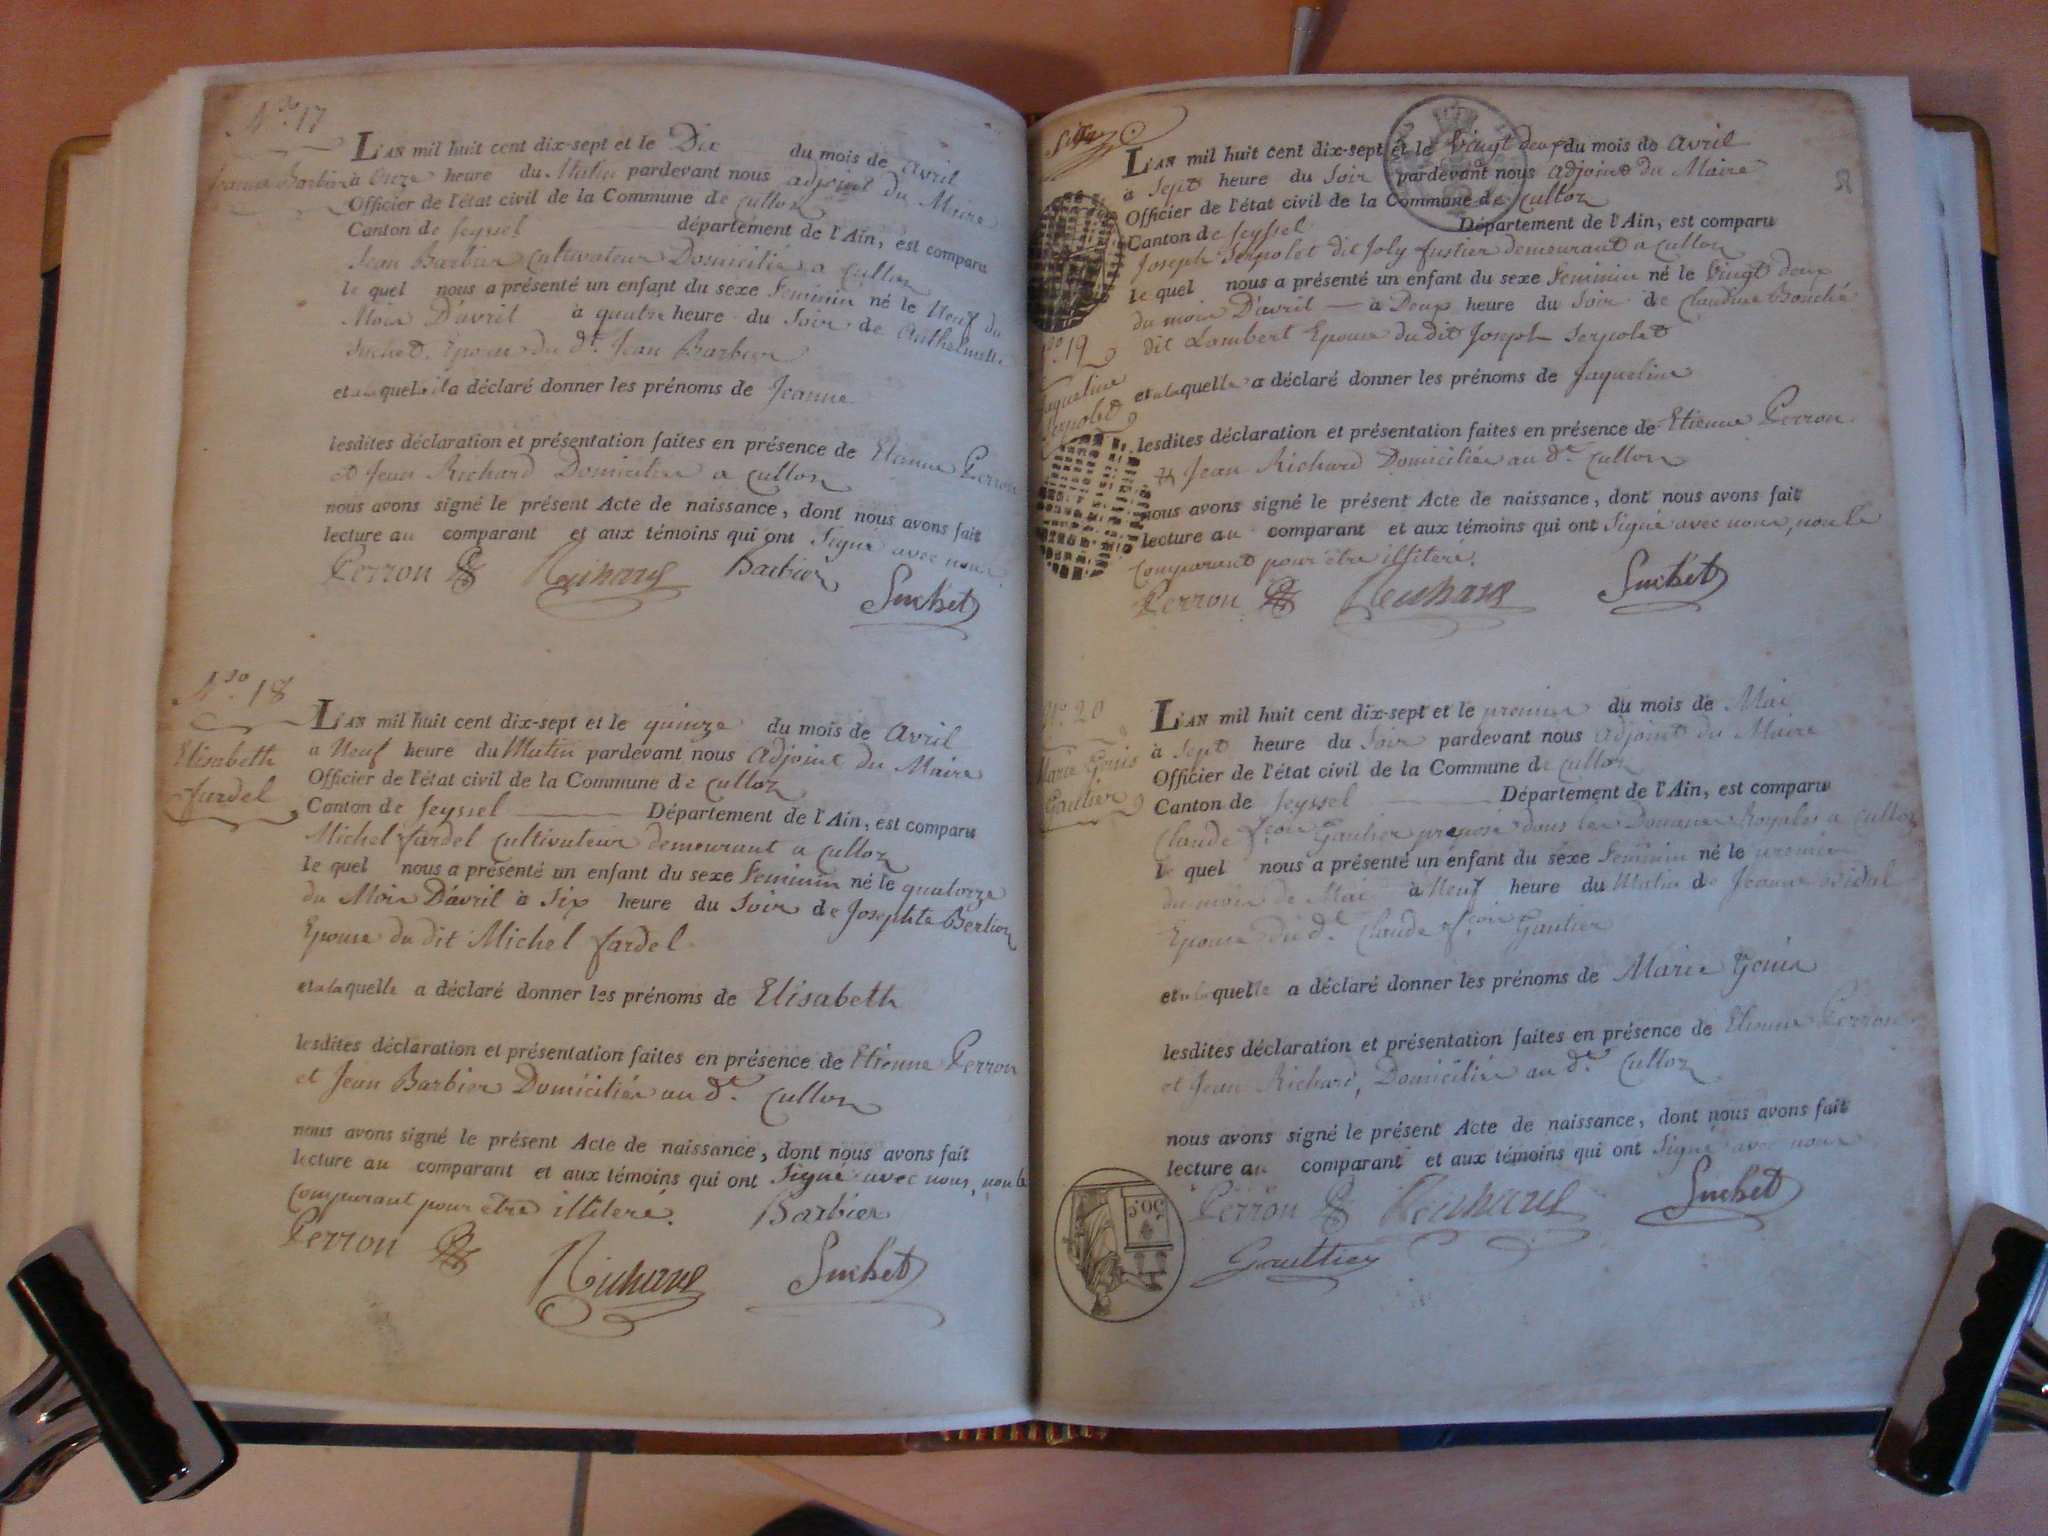 N.ro 17
Jeanne Barbier
L'AN mil huit cent dix-sept et le Dix du mois de avril
à Onze heure du Matin pardevant nous adjoint du Maire
Officier de l'état civil de la Commune de Culloz
Canton de Seyssel département de l'Ain, est comparu
Jean Barbier Cultivateur Domicilié a Culloz
le quel nous a présenté un enfant du sexe Feminin né le Neuf du
Mois D'avril à quatre heure du Soir de Anthelmette
Suchet Epouse du d.t Jean Barbier
et a la quel il a déclaré donner les prénoms de Jeanne
lesdites déclaration et présentation faites en présence de Etienne Perron
et Jean Richard Domiciliés a Culloz
nous avons signé le présent Acte de naissance, dont nous avons fait
lecture au comparant et aux témoins qui ont Signé avec nous
Perron Richard Barbier
Suchet
N.ro 18
Elisabeth
fardel
L'AN mil huit cent dix-sept et le quinze du mois de avril
a Neuf heure du Matin pardevant nous Adjoint du Maire
Officier de l'état civil de la Commune de Culloz
Canton de Seyssel Département de l'Ain, est comparu
Michel fardel Cultivateur demeurant a Culloz
le quel nous a présenté un enfant du sexe Feminin né le quatorze
du Mois D'avril à Six heure du Soir de Josephte Berlioz
Epouse du dit Michel fardel
et a la quelle a déclaré donner les prénoms de Elisabeth
lesdites déclaration et présentation faites en présence de Etienne Perron
et Jean Barbier Domiciliés au d.t Culloz
nous avons signé le présent Acte de naissance, dont nous avons fait
lecture au comparant et aux témoins qui ont Signé avec nous, non le
Comparant pour être illiteré. Barbier
Perron Richard Suchet
L'AN mil huit cent dix-sept et le Vingt deux du mois de avril
à Sept heure du Soir pardevant nous adjoint du Maire
Officier de l'état civil de la Commune de Culloz
Canton de Seyssel Département de l'Ain, est comparu
Joseph Serpolet dit Joly fustier demeurant a Culloz
le quel nous a présenté un enfant du sexe Feminin né le Vingt deux
du mois D'avril à Deux heure du Soir de Claudine Bouchè
dit Lambert Epouse du dit Joseph Serpolet
N.ro 19
Jaqueline
Serpolet
et a la quelle a déclaré donner les prénoms de Jaqueline
lesdites déclaration et présentation faites en présence de Etienne Perron
et Jean Richard Domiciliés au d.t Culloz
nous avons signé le présent Acte de naissance, dont nous avons fait
lecture au comparant et aux témoins qui ont Signé avec nous, non le
Comparant pour être illiteré.
Perron Richard Suchet
N.o 20
Marie Gonis
Gautier
L'AN mil huit cent dix-sept et le premier du mois de Mai
à Sept heure du Soir pardevant nous adjoint du Maire
Officier de l'état civil de la Commune de Culloz
Canton de Seyssel Département de l'Ain, est comparu
Claude f.çois Gautier preposé dans les Douanes Royales a Culloz
le quel nous a présenté un enfant du sexe Feminin né le premier
du mois de Mai à Neuf heure du Matin de Jeanne Bidal
Epouse du d.t Claude f.çois Gautier
et a la quelle a déclaré donner les prénoms de Marie Gonis
lesdites déclaration et présentation faites en présence de Etienne Perron
et Jean Richard, Domiciliés au d.t Culloz
nous avons signé le présent Acte de naissance, dont nous avons fait
lecture au comparant et aux témoins qui ont Signé avec nous
Perron Richard Suchet
Gaultier
50.C